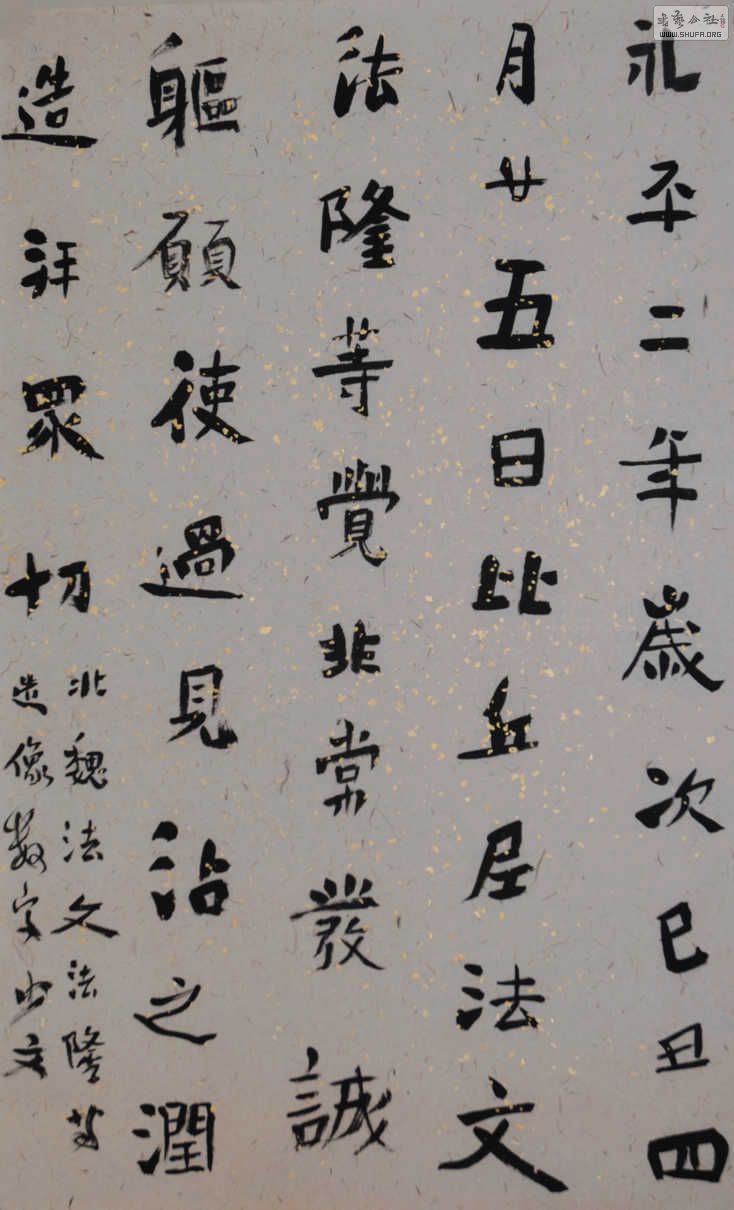 永平二年歲次巳丑四
月廿五日比丘尼法文
法隆等覺非常發誠
軀願使過見沾之潤
造拜眾切
北魏法文法隆等
造像數字少文
書藝公社
WWW.SHUFA.ORG